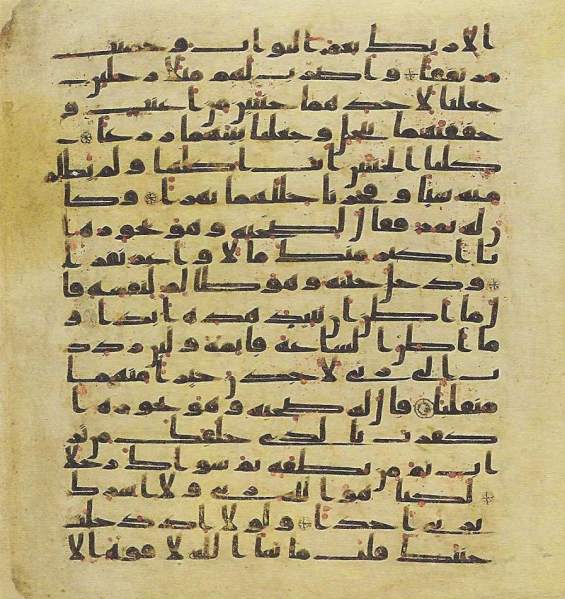 الارىك نعم الثواب وحسنت
مرتفقا واضرب لهم مثلا رجلين
جعلنا لاحدهما جنتين من اعنب و
حففنهما بنخل وجعلنا بينهما زرعا
كلتا الجنتين اتت اكلها ولم تظلم
منه شيا وفجرنا خللهما نهرا وكا
ن له ثمر فقال لصحبه وهو يحوره ا
نا اكثر منك مالا واعز نفرا
ودخل جنته وهو ظالم لنفسه قا
ل ما اظن ان تبيد هذه ابدا و
ما اظن الساعة قايمة ولين ردد
ت الى ربي لاجدن خيرا منهما
منقلبا قال له صحبه وهو يحوره ا
كفرت بالذي خلقك من تر
اب ثم من نطفة ثم سواك رجلا
لكنا هو الله ربي ولا اشرك
بربي احدا ولولا اذ دخلت
جنتك قلت ما شا الله لا قوة الا